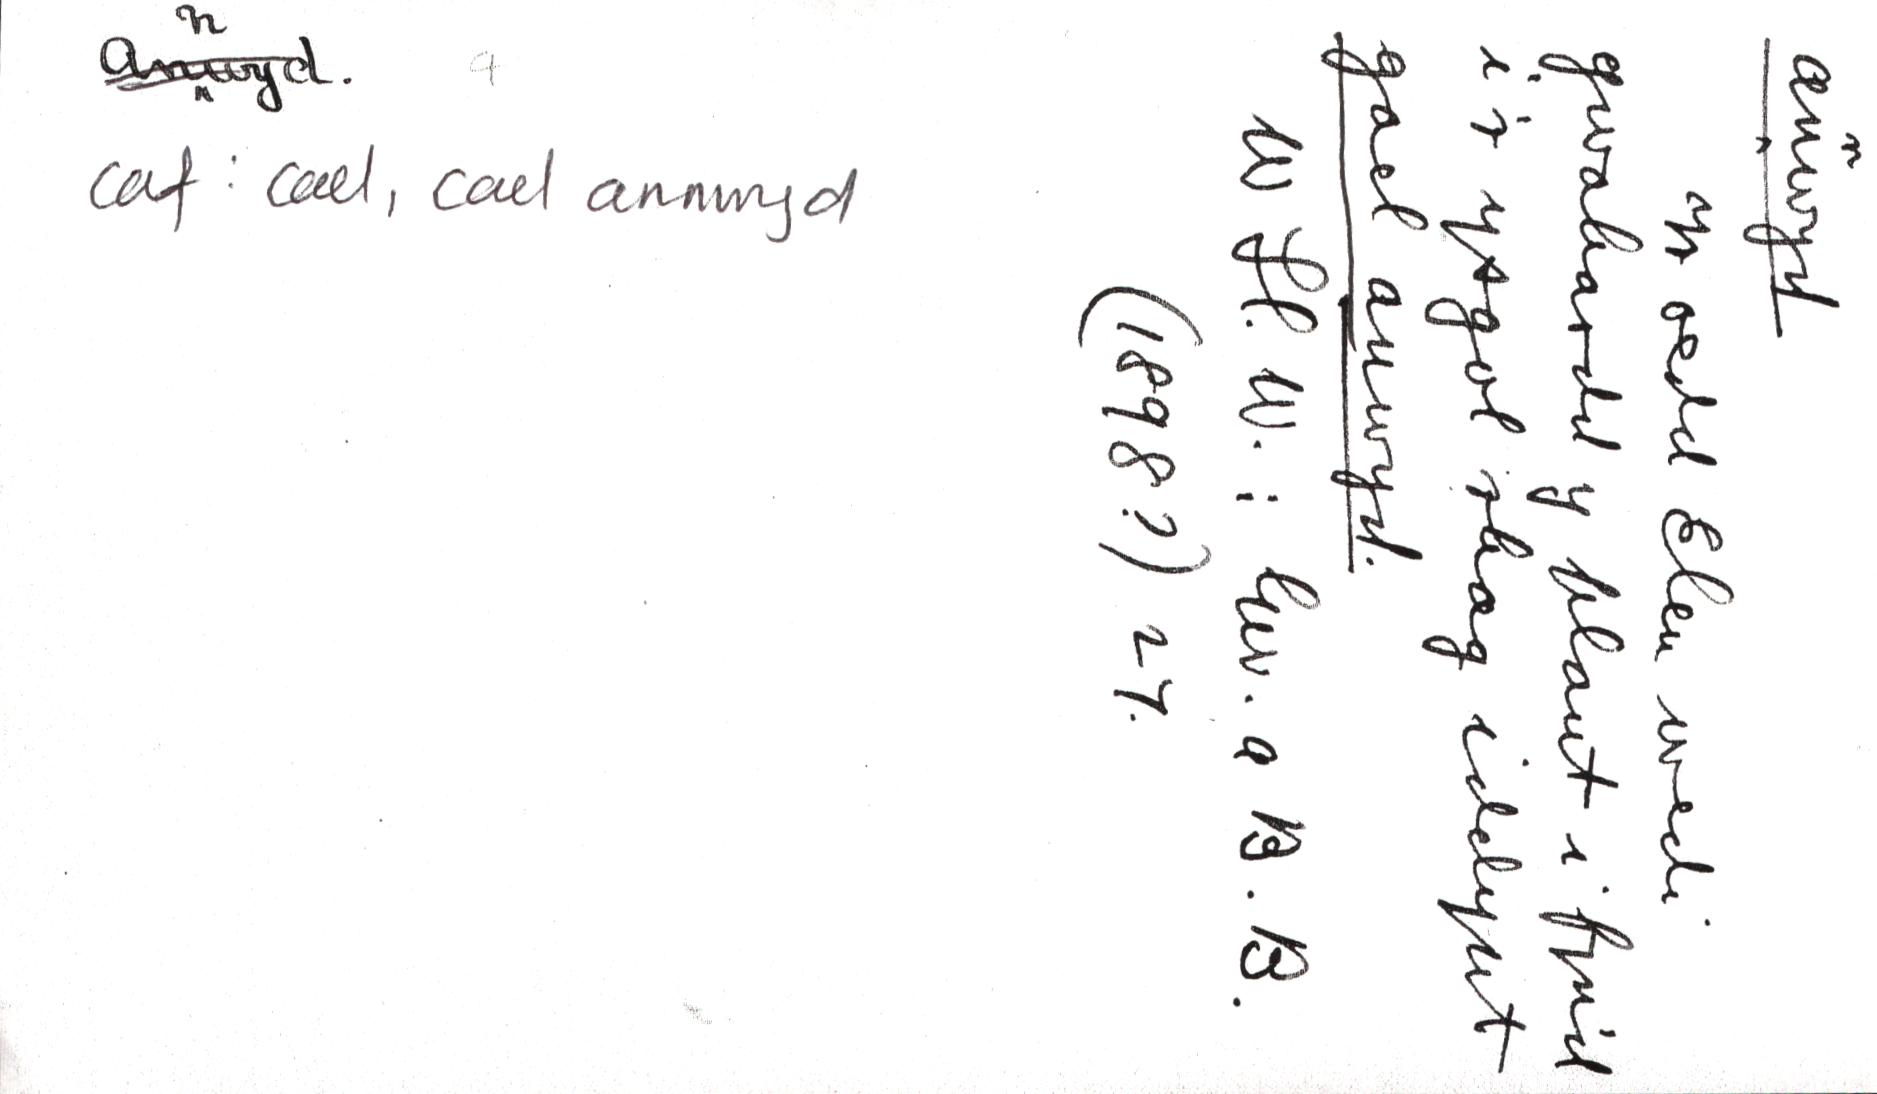 annwyd. a
caf : cael, cael annwyd
annwyd
Yr oedd Elen wedi
gwahardd y plant i fyn'd
i'r ysgol rhag iddynt
gael anwyd.
W Ll. W. : Gw. a B. B.
(1898?) 27.